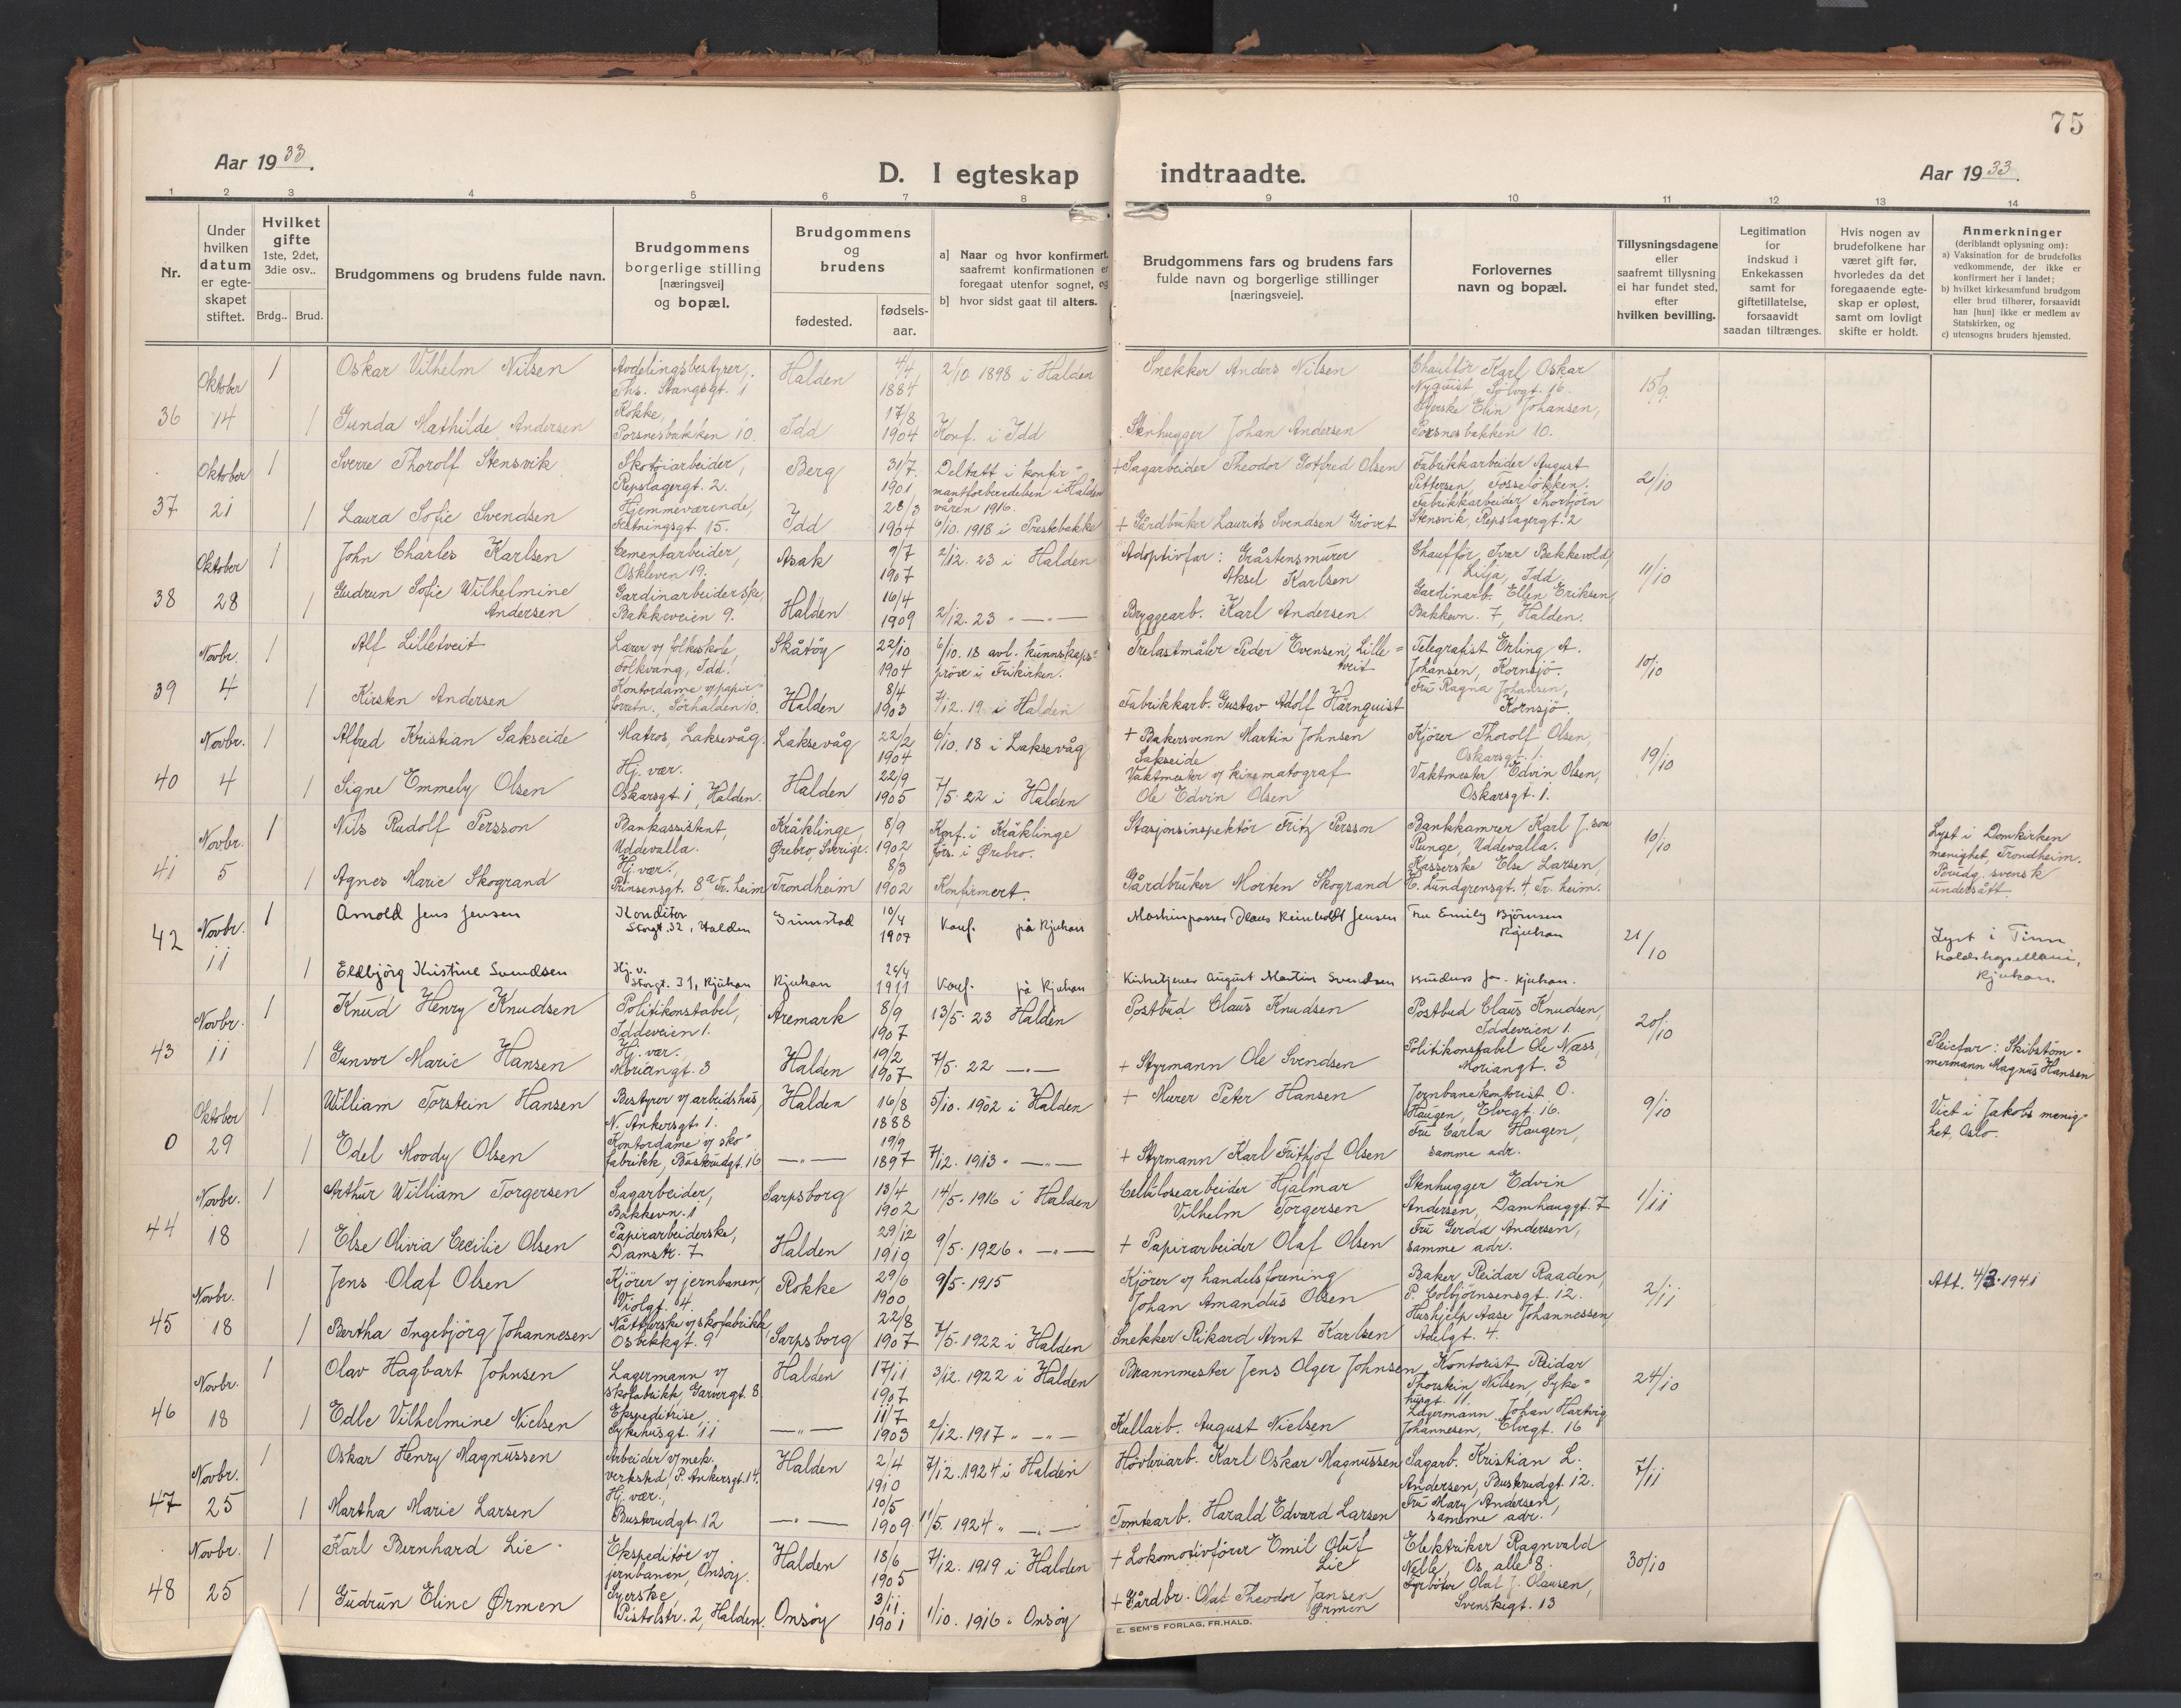 75
Aar 1933.
D. I egteskap indtraadte.
Aar 1933.
1 2 3 4 5 6 7 8 9 10 11 12 13 14
Nr.
Under hvilken datum er egteskapet stiftet.
Hvilket gifte 1ste, 2det, 3die osv..
Brdg.. Brud.
Brudgommens og brudens fulde navn.
Brudgommens borgerlige stilling [næringsvei] og bopæl.
Brudgommens og brudens
fødested. fødselsaar.
a] Naar og hvor konfirmert, saafremt konfirmationen er foregaat utenfor sognet, og
b] hvor sidst gaat til alters.
Brudgommens fars og brudens fars fulde navn og borgerlige stillinger [næringsveie].
Forlovernes navn og bopæl.
Tillysningsdagene eller saafremt tillysning ei har fundet sted, efter hvilken bevilling.
Legitimation for indskud i Enkekassen samt for giftetillatelse, forsaavidt saadan tiltrænges.
Hvis nogen av brudefolkene har været gift før, hvorledes da det foregaaende egteskap er opløst, samt om lovligt skifte er holdt.
Anmerkninger (deriblandt oplysning om):
a) Vaksination for de brudefolks vedkommende, der ikke er konfirmert her i landet;
b) hvilket kirkesamfund brudgom eller brud tilhører, forsaavidt han [hun] ikke er medlem av Statskirken, og
c) utensogns bruders hjemsted.
36 Oktober 14 1 Oskar Vilhelm Nilsen Avdelingsbestyrer, Ths. Stangsgt. 1 Halden 4/4 1884 2/10 1898 i Halden Snekker Anders Nilsen Chaufför Karl Oskar Nyquist, Sölvgt. 16. 15/9.
1 Gunda Mathilde Andersen Kokke, Porsnesbakken 10. Idd 17/8 1904 Konf. i Idd Stenhugger Johan Andersen Syerske Elin Johansen, Porsnesbakken 10.
37 Oktober 21 1 Sverre Thorolf Stensvik Skotöiarbeider, Repslagergt. 2. Berg 31/7. 1901 Deltatt i konfirmantforberedelsen i Halden våren 1916. + Sagarbeider Theodor Gotfred Olsen Fabrikkarbeider August Pettersen, Fosselökken. 2/10
1 Laura Sofie Svendsen Hjemmeværende, Festningsgt. 15. Idd 28/3 1904 6/10. 1918 i Prestebakke + Gårdbruker Laurits Svendsen Grövet Fabrikkarbeider Thorbjörn Stensvik, Repslagergt. 2
38 Oktober 28 1 John Charles Karlsen Cementarbeider, Oskleven 19. Asak 9/7 1907 2/12. 23 i Halden Adoptivfar: Gråstensmurer Aksel Karlsen Chaufför Iver Bakkevold, Lilja, Idd. 11/10
1 Gudrun Sofie Wilhelmine Andersen Gardinarbeiderske, Bakkeveien 9. Halden 16/4 1909 2/12. 23 " — " — Bryggearb. Karl Andersen. Gardinarb. Ellen Eriksen, Bakkevn. 7, Halden.
39 Novbr. 4 1 Alf Lilletveit Lærer v/ folkeskole, Folkvang, Idd. Skåtöy 22/10 1904 6/10. 18 avl. kunnskapspröve i Frikirken. Trelastmåler Peder Evensen Lilletveit Telegrafist Erling A. Johansen, Kornsjö. 10/10
1 Kirsten Andersen Kontordame v/ papirforretn., Sörhalden 10. Halden 8/4 1903 7/12. 19 i Halden Fabrikkarb. Gustav Adolf Härnquist Fru Ragna Johansen, Kornsjö.
40 Novbr. 4 1 Alfred Kristian Sakseide Matros, Laksevåg. Laksevåg 22/2 1904 6/10. 18 i Laksevåg + Bakersvenn Martin Johnsen Sakseide Kjörer Thorolf Olsen, Oskarsgt. 1. 19/10
1 Signe Emmely Olsen Hj. vær. Oskarsgt. 1, Halden. Halden 22/9 1905 7/5. 22 i Halden Vaktmester v/ kinematograf Ole Edvin Olsen Vaktmester Edvin Olsen, Oskarsgt. 1.
41 Novbr. 5 1 Nils Rudolf Persson Bankassistent, Uddevalla. Kräklinge, Ørebro, Sverige. 8/9 1902 Konf. i Kräklinge fors. i Ørebro. Stasjonsinspektör Fritz Persson Bankkamrer Karl J:son Runge, Uddevalla. 10/10 Lyst i Domkirken menighet, Trondheim. Brudg. svensk undersått.
1 Agnes Marie Skogrand Hj. vær., Prinsensgt. 8a Tr. heim Trondheim 8/3 1902 Konfirmert. Gårdbruker Morten Skogrand Kasserske Else Larsen, H. Lundgrensgt. 4, Tr. heim.
42 Novbr. 11 1 Arnold Jens Jensen Konditor Storgt. 32, Halden Grimstad 10/4 1907 Konf. på Rjukan Maskinpasser Claus Reinholdt Jensen Fru Emily Björnsen Rjukan 21/10 Lyst i Tinn Rjukan.
1 Eldbjörg Kristine Svendsen Hj. v. Storgt. 31, Rjukan Rjukan 26/4 1911 Konf. på Rjukan Kirketjener August Martin Svendsen Rjukan.
43 Novbr. 11 1 Knud Henry Knudsen Politikonstabel, Iddeveien 1. Aremark 8/9 1907 13/5. 23 Halden Postbud Claus Knudsen Postbud Claus Knudsen, Iddeveien 1. 20/10
1 Gunvor Marie Hansen Hj. vær., Moriangt. 3 Halden 19/2 1907 7/5. 22 — " — + Styrmann Ole Svendsen Politikonstabel Ole Næss, Moriangt. 3 Pleiefar: Skibstömmermann Magnus Hansen
0 Oktober 29 1 William Torstein Hansen Bestyrer v/ arbeidshus, N. Ankersgt. 1. Halden 16/8 1888 5/10. 1902 i Halden + Murer Peter Hansen Jernbanekontorist O. Haugen, Elvegt. 16. 9/10 Viet i Jakobs menighet, Oslo.
1 Edel Moody Olsen Kontordame v/ skofabrikk, Buskrudgt. 16 — " — 19/9 1897 7/12. 1913 " — " — + Styrmann Karl Frithjof Olsen Fru Carla Haugen, samme adr.
44 Novbr. 18 1 Arthur William Torgersen Sagarbeider, Bakkevn. 1 Sarpsborg 13/4 1902 14/5. 1916 i Halden Cellulosearbeider Hjalmar Vilhelm Torgersen Stenhugger Edvin Andersen, Damhauggt. 7 1/11
1 Else Olivia Cecilie Olsen Papirarbeiderske, Damstr. 7 Halden 29/12 1910 9/5. 1926 " — " — + Papirarbeider Olaf Olsen Fru Gerda Andersen, samme adr.
45 Novbr. 18 1 Jens Olaf Olsen Kjörer v/ jernbanen, Violgt. 4. Rokke 29/6 1900 9/5. 1915 Kjörer v/ handelsforening Johan Amandus Olsen Baker Reidar Raaden, P. Colbjörnsensgt. 12. 2/11 Att. 4/3. 1941
1 Bertha Ingebjörg Johannesen Nåtlerske v/ skofabrikk, Osbekkgt. 9 Sarpsborg 22/8 1907 7/5. 1922 i Halden Snekker Rikard Arnt Karlsen Hushjelp Aase Johannessen, Adelgt. 4.
46 Novbr. 18 1 Olav Hagbart Johnsen Lagermann v/ skofabrikk, Garvergt. 8 Halden 17/11 1907 3/12. 1922 i Halden Brannmester Jens Olger Johnsen Kontorist Reidar Thorstein Nilsen, Sykehusgt. 11. 24/10
1 Edle Vilhelmine Nielsen Ekspeditrise, Sykehusgt. 11 — " — 11/7 1903 2/12. 1917 " — " — Kullarb. August Nielsen Lagermann Johan Hartvig Johannesen, Elvegt. 16
47 Novbr. 25 1 Oskar Henry Magnussen Arbeider v/ mek. verksted, P. Ankersgt. 14. Halden 2/4 1910 7/12. 1924 i Halden Hövleriarb. Karl Oskar Magnussen Sagarb. Kristian L. Andersen, Buskrudgt. 12. 7/11
1 Martha Marie Larsen Hj. vær., Buskrudgt. 12 — " — 10/5 1909 11/5. 1924 " — " — Tomtearb. Harald Edvard Larsen Fru Mary Andersen, samme adr.
48 Novbr. 25 1 Karl Bernhard Lie Ekspeditör v/ jernbanen, Onsöy. Halden 18/6 1905 7/12. 1919 i Halden + Lokomotivförer Emil Oluf Lie Elektriker Ragnvald Nelle, Os alle 8. 30/10
1 Gudrun Eline Ørmen Syerske, Pistolstr. 2, Halden. Onsöy 3/11 1901 1/10. 1916 " Onsöy + Gårdbr. Olat Theodor Jansen Ørmen Fyrböter Olaf J. Olausen, Svenskegt. 13
E. SEM'S FORLAG, FR.HALD.